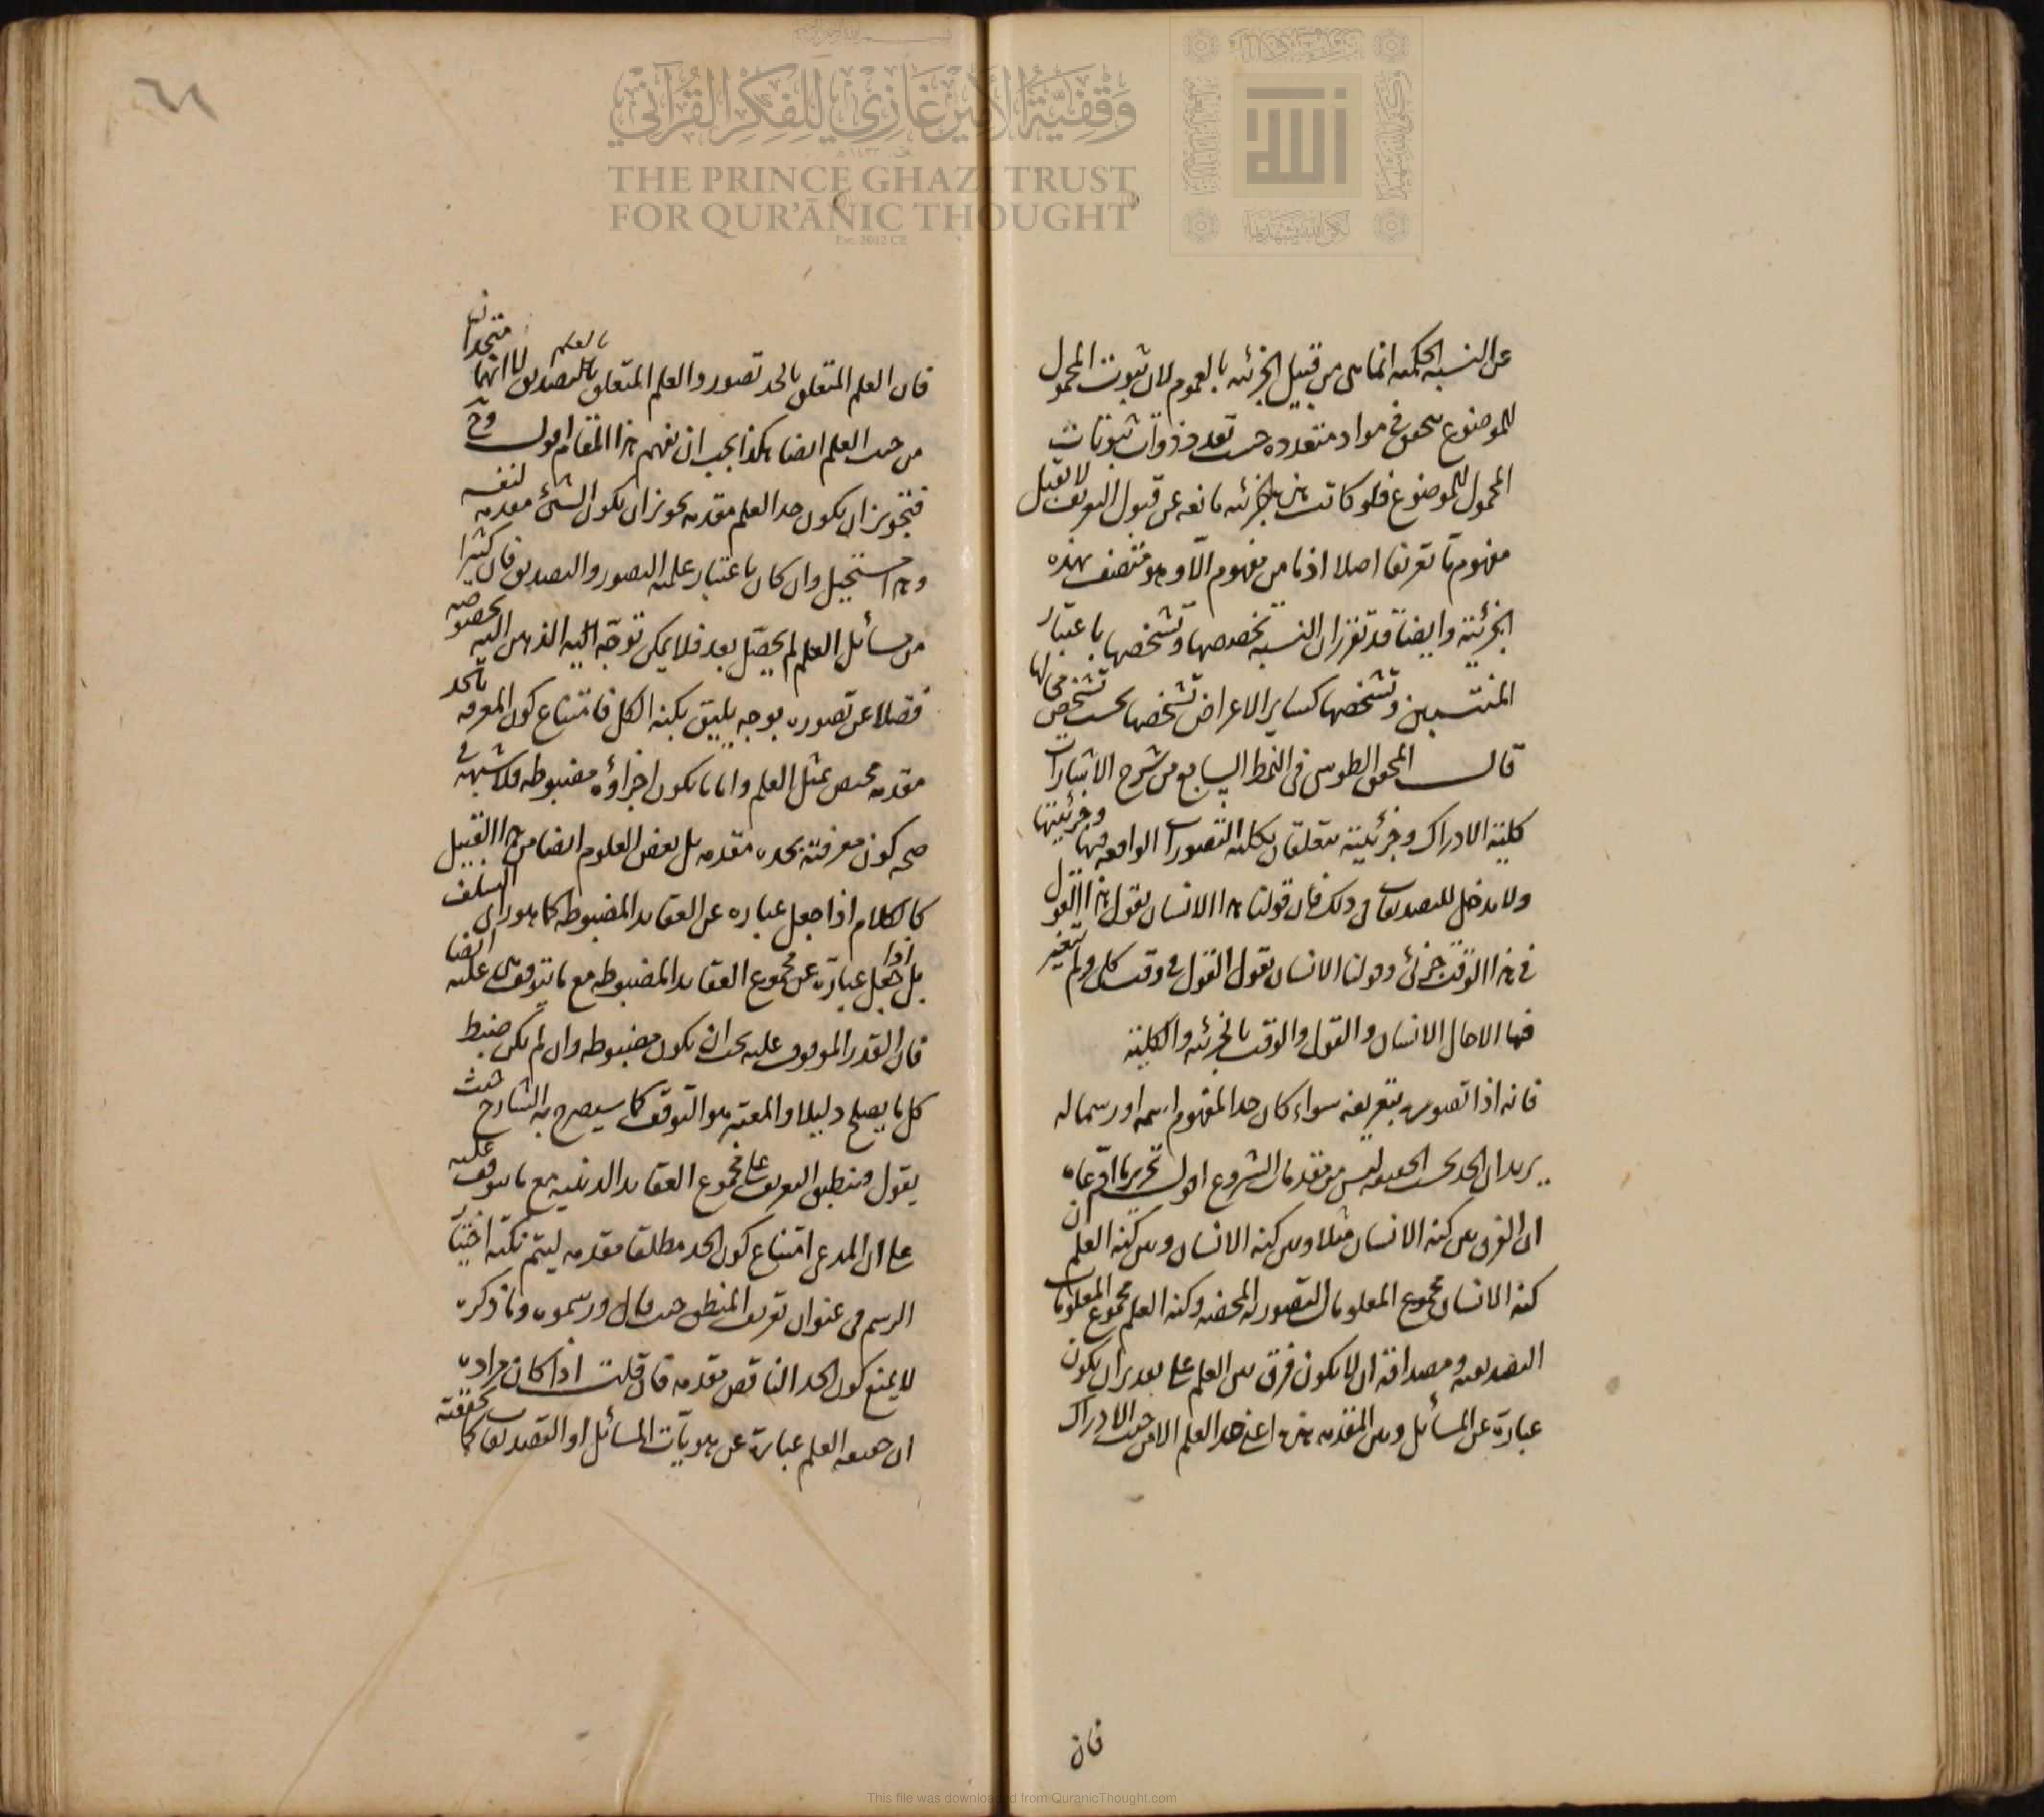 عن النسبة الحكمية انما هى من قبيل الجزئية بالعموم لان ثبوت المحمول
للموضوع يتحقق فى مواد متعددة حسب تعدد ذوات ثبوتات
المحمول للموضوع فلو كانت هذه الجزئية مانعة عن قبول التعريف لا يقبل
مفهوم ما تعريفا اصلا اذ ما من مفهوم الا وهو متصف بهذه
الجزئية وايضا قد تقرر ان النسبة تخصصها وتشخصها باعتبار
المنتسبين وتشخصها كساير الاعراض تشخصها بحسب تشخص محالها
قال المحقق الطوسى فى النمط السابع من شرح الاشارات
كلية الادراك وجزئيته تتعلقان بكلية التصورات الواقعة فيها وجزئيتها
ولا مدخل للتصديقات فى ذلك فان قولنا هذا الانسان يقول هذا القول
فى هذا الوقت جزئى وقولنا الانسان يقول القول فى وقت كلى ولم يتغير
فيها الا حال الانسان والقول والوقت بالجزئية والكلية
فانه اذا تصور بتعريفه سواء كان حدا لمفهوم اسمه او رسما له
يريد ان الحد بحسب الحقيقة ليس من مقدمات الشروع اقول تحرير ما ادعاه
ان الفرق بين كنه الانسان مثلا وبين كنه الانسان وبين كنه العلم ان
كنه الانسان مجموع المعلومات التصورية المحضة وكنه العلم مجموع المعلومات
التصديقية ومصداقه ان لا يكون فرق بين العلم على تقدير ان يكون
عبارة عن المسائل وبين المقدمة هذه اعنى حد العلم الا من حيث الادراك
فان
٦١
فان العلم المتعلق بالحد تصور والعلم المتعلق بالعلم بالتصديق لا انهما متحدان
من حيث العلم ايضا هكذا يجب ان يفهم هذا المقام اقول وح
فتجويز ان يكون حد العلم مقدمة تجويز ان يكون الشئ مقدمة لنفسه
وهذا مستحيل وان كان باعتبار علمية التصور والتصديق فان كثيرا
من مسائل العلم لم يحصل بعد فلا يمكن توجه الذهن اليه بخصوصه
فضلا عن تصوره بوجه يليق بكنه الكل فامتناع كون المعرفة بالحد
مقدمة مختص بمثل العلم واما ما يكون اجزاؤه مضبوطة فلا شبهة فى
صحة كون معرفته بحده مقدمة بل بعض العلوم ايضا من هذا القبيل
كالكلام اذا جعل عبارة عن العقايد المضبوطة كما هو رأى السلف
بل اذا جعل عبارة عن مجموع العقايد المضبوطة مع ما يتوقف عليه ايضا
فان القدر الموقوف عليه يجب ان يكون مضبوطة وان لم يكن ضبط
كل ما يصلح دليلا والمعتبر هو التوقف كما سيصرح به الشارح حيث
يقول وينطبق التعريف على مجموع العقايد الدينية مع ما يتوقف عليه
على ان المدعى امتناع كون الحد مطلقا مقدمة ليتم نكتة اختيار
الرسم فى عنوان تعريف المنطق حيث قال ورسموه وما ذكره
لا يمنع كون الحد الناقص مقدمة فان قلت اذا كان مراده
ان حقيقة العلم عبارة عن هويات المسائل او التصديقات كما حققته
وقفية الأمير غازي للفكر القرآني
THE PRINCE GHAZI TRUST
FOR QUR'ĀNIC THOUGHT
Est. 2012 CE
This file was downloaded from QuranicThought.com